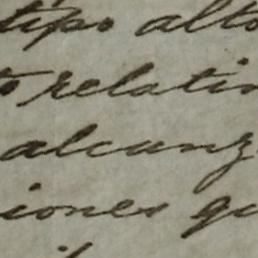 tipo alto
relatin
alcanz
iones qu